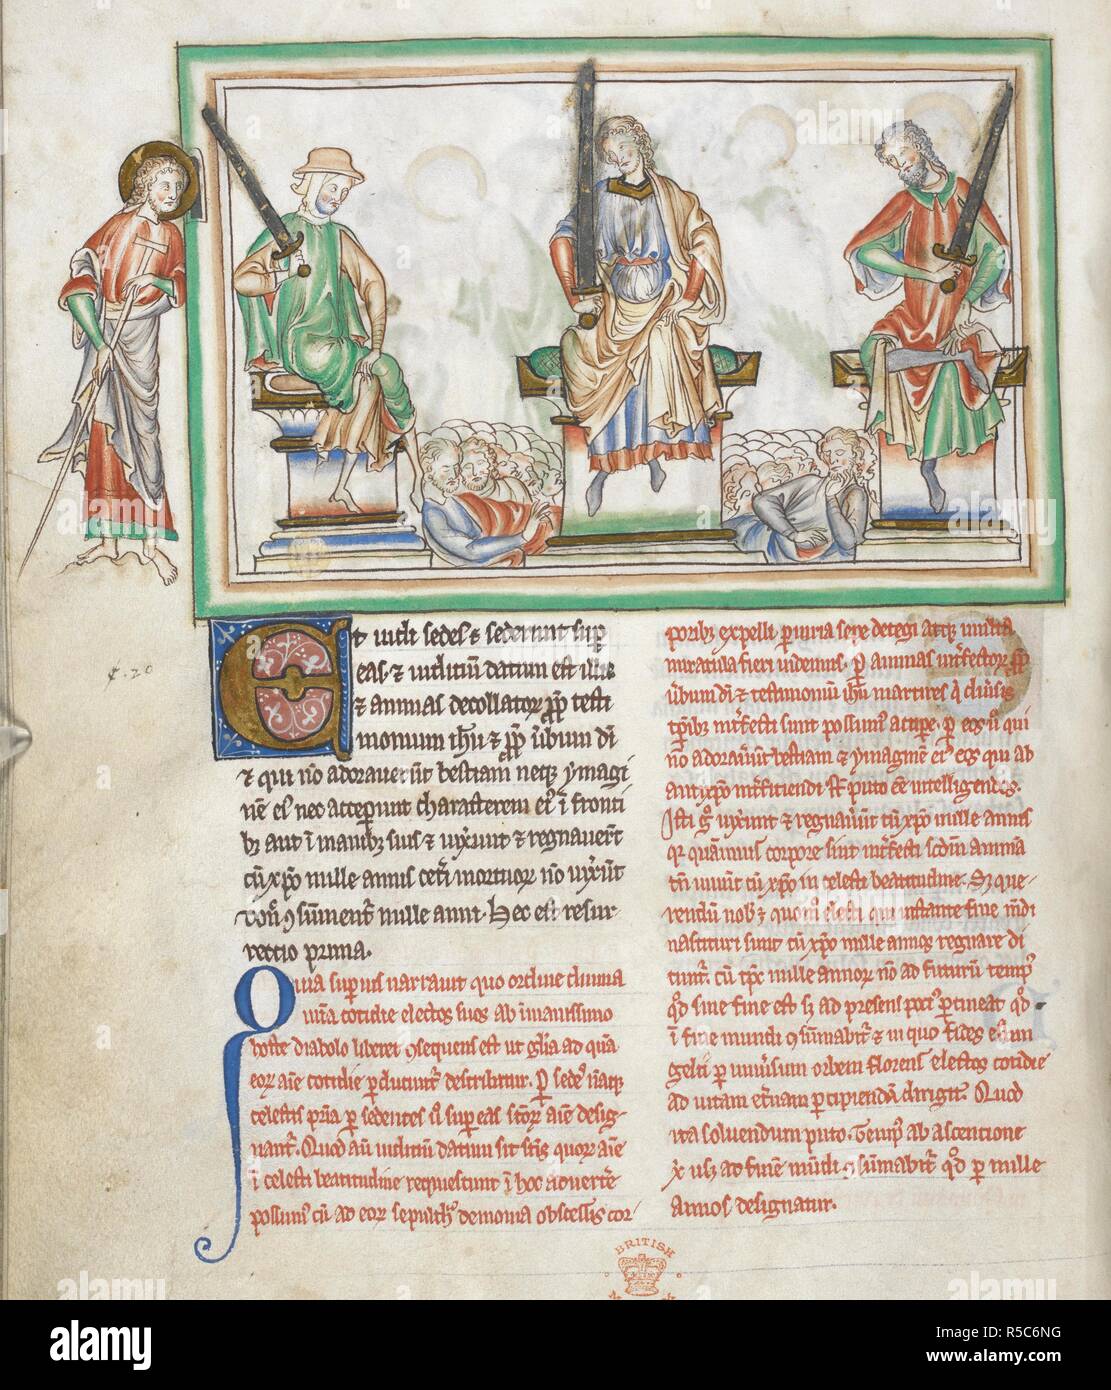 Et vidi sedes & sederunt sup
eas. & iudicium datum est illis
& animas decollator ppt testi
monium ihu & ppt ubum di
& qui nō adorauerūt bestiam neqz ymagi
nē ei nec acceperunt characterem ei ī fronti
bz aut ī manibz suis & uixerunt & regnauerūt
cū xpo mille annis ceti mortuor nō uixerūt
donec ꝯsument mille anni. Hec est resur
rectio prima.
Quia superius narrauit quo ordine diuina
cotidie electos suos ab inmanissimo
hoste diabolo liberet ꝯsequens est ut glia ad quā
eor aīe cotidie pducunt describitur. P sedes
celestis pria p sedentes u sup eas scor aīe desig
nant. Quod aū iudicium datum sit scis quor aīe
ī celesti beatitudine requiescunt ī hoc aduerte
possum cū ad eor sepulch demonia obsessis cor
poribz expelli piuria sepe detegi atqz multa
miracula fieri uidemus. P animas intfector ppt
ubum di & testimoniū ihu martires q diuisis
tpibz intfecti sunt possum accipe. p eos u qui
nō adorauunt bestiam & ymaginē ei eos qui ab
antixpo intficiendi st puto eē intelligendos.
Isti g uixerunt & regnauunt cū xpo mille annis
qr quāmuis corpore sint intfecti scdm animā
tn uiuunt cū xpo in celesti beatitudine. Sz que
rendū nobis quom electi qui instante fine mūdi
nascituri sunt cū xpo mille annos regnare di
cunt. cū tps mille annor nō ad futurū temp
qd sine fine est sz ad presens poci ptineat qd
ī fine mundi ꝯsumabit & in quo fides euan
gelii p uniusum orbem florens electos cotidie
ad uitam etnam pcipiendā dirigit. Quod
ita soluendum puto. Temp ab ascensione
xi usqz ad finē mūdi ꝯsumabit qd p mille
annos designatur.
c. 20
BRITISH
alamy
Image ID: R5C6NG
www.alamy.com